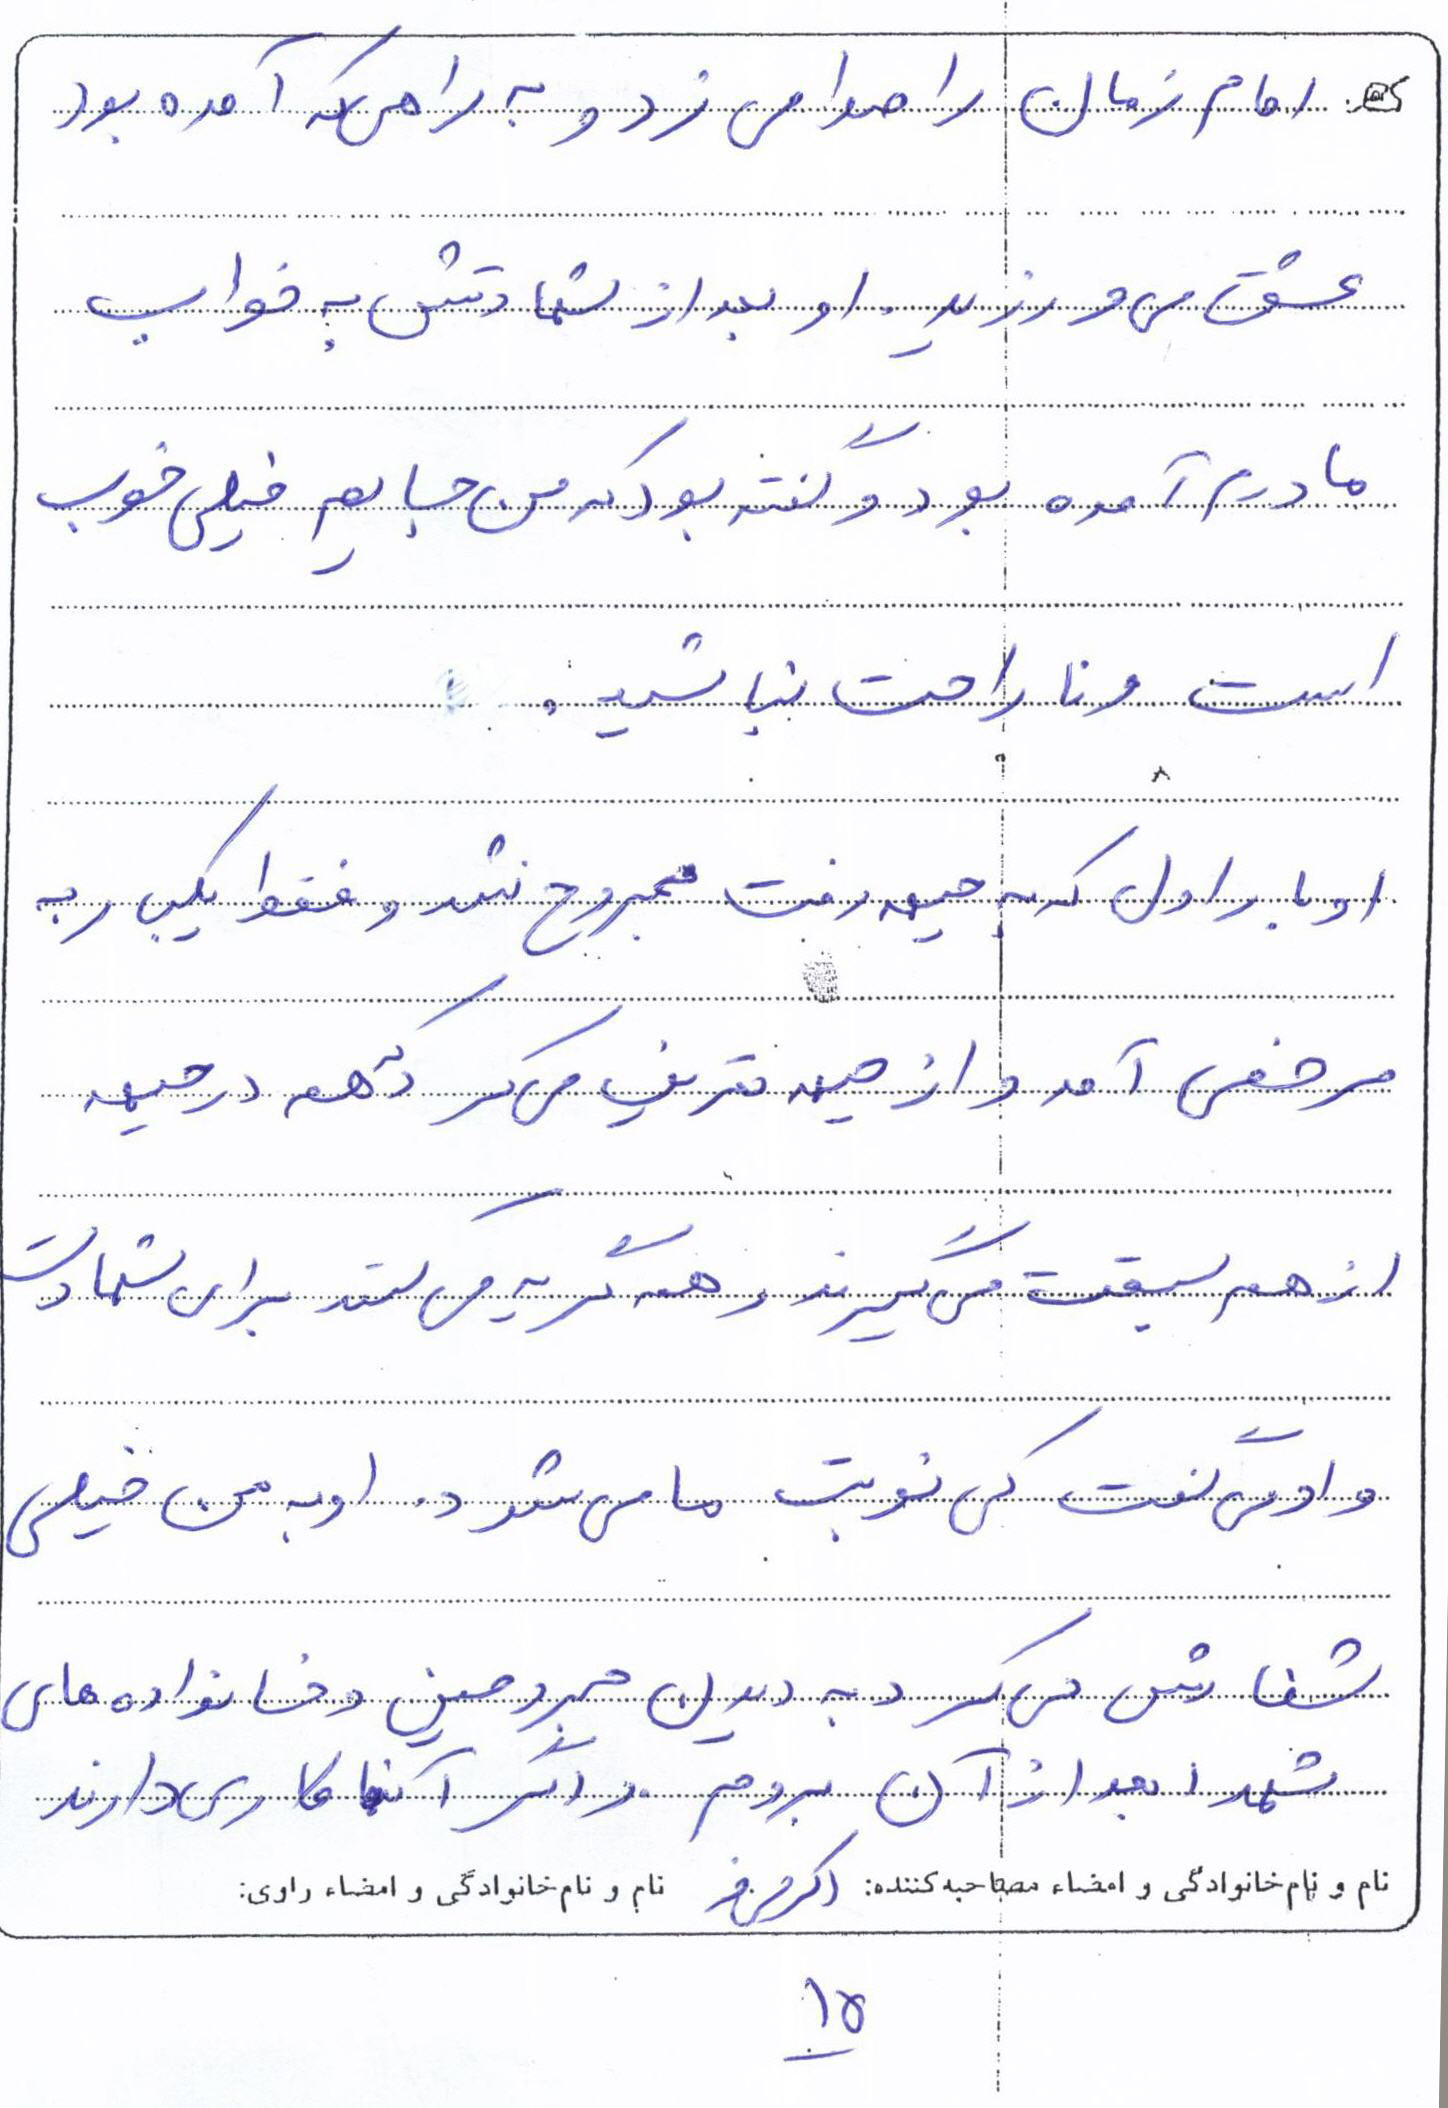 امام زمان را صدا می زد و به راهی که آمده بود
عشق می ورزید. او بعد از شهادتش به خواب
مادرم آمده بود و گفته بود که من جایم خیلی خوب
است و ناراحت نباشید.
او بار اول که به جبهه رفت مجروح نشد و فقط یکبار به
مرخصی آمد و از جبهه تعریف می کرد که همه در جبهه
از هم سبقت می گیرند و همه گریه می کنند برای شهادت
و او می گفت کی نوبت ما می شود. او به من خیلی
شفارش می کرد به دیدن مجروحین و خانواده های
شهدا بعد از آن بروم. و اگر آنها کاری دارند
نام و نام خانوادگی و امضاء مصاحبه کننده: نام و نام خانوادگی و امضاء راوی:
۱۵